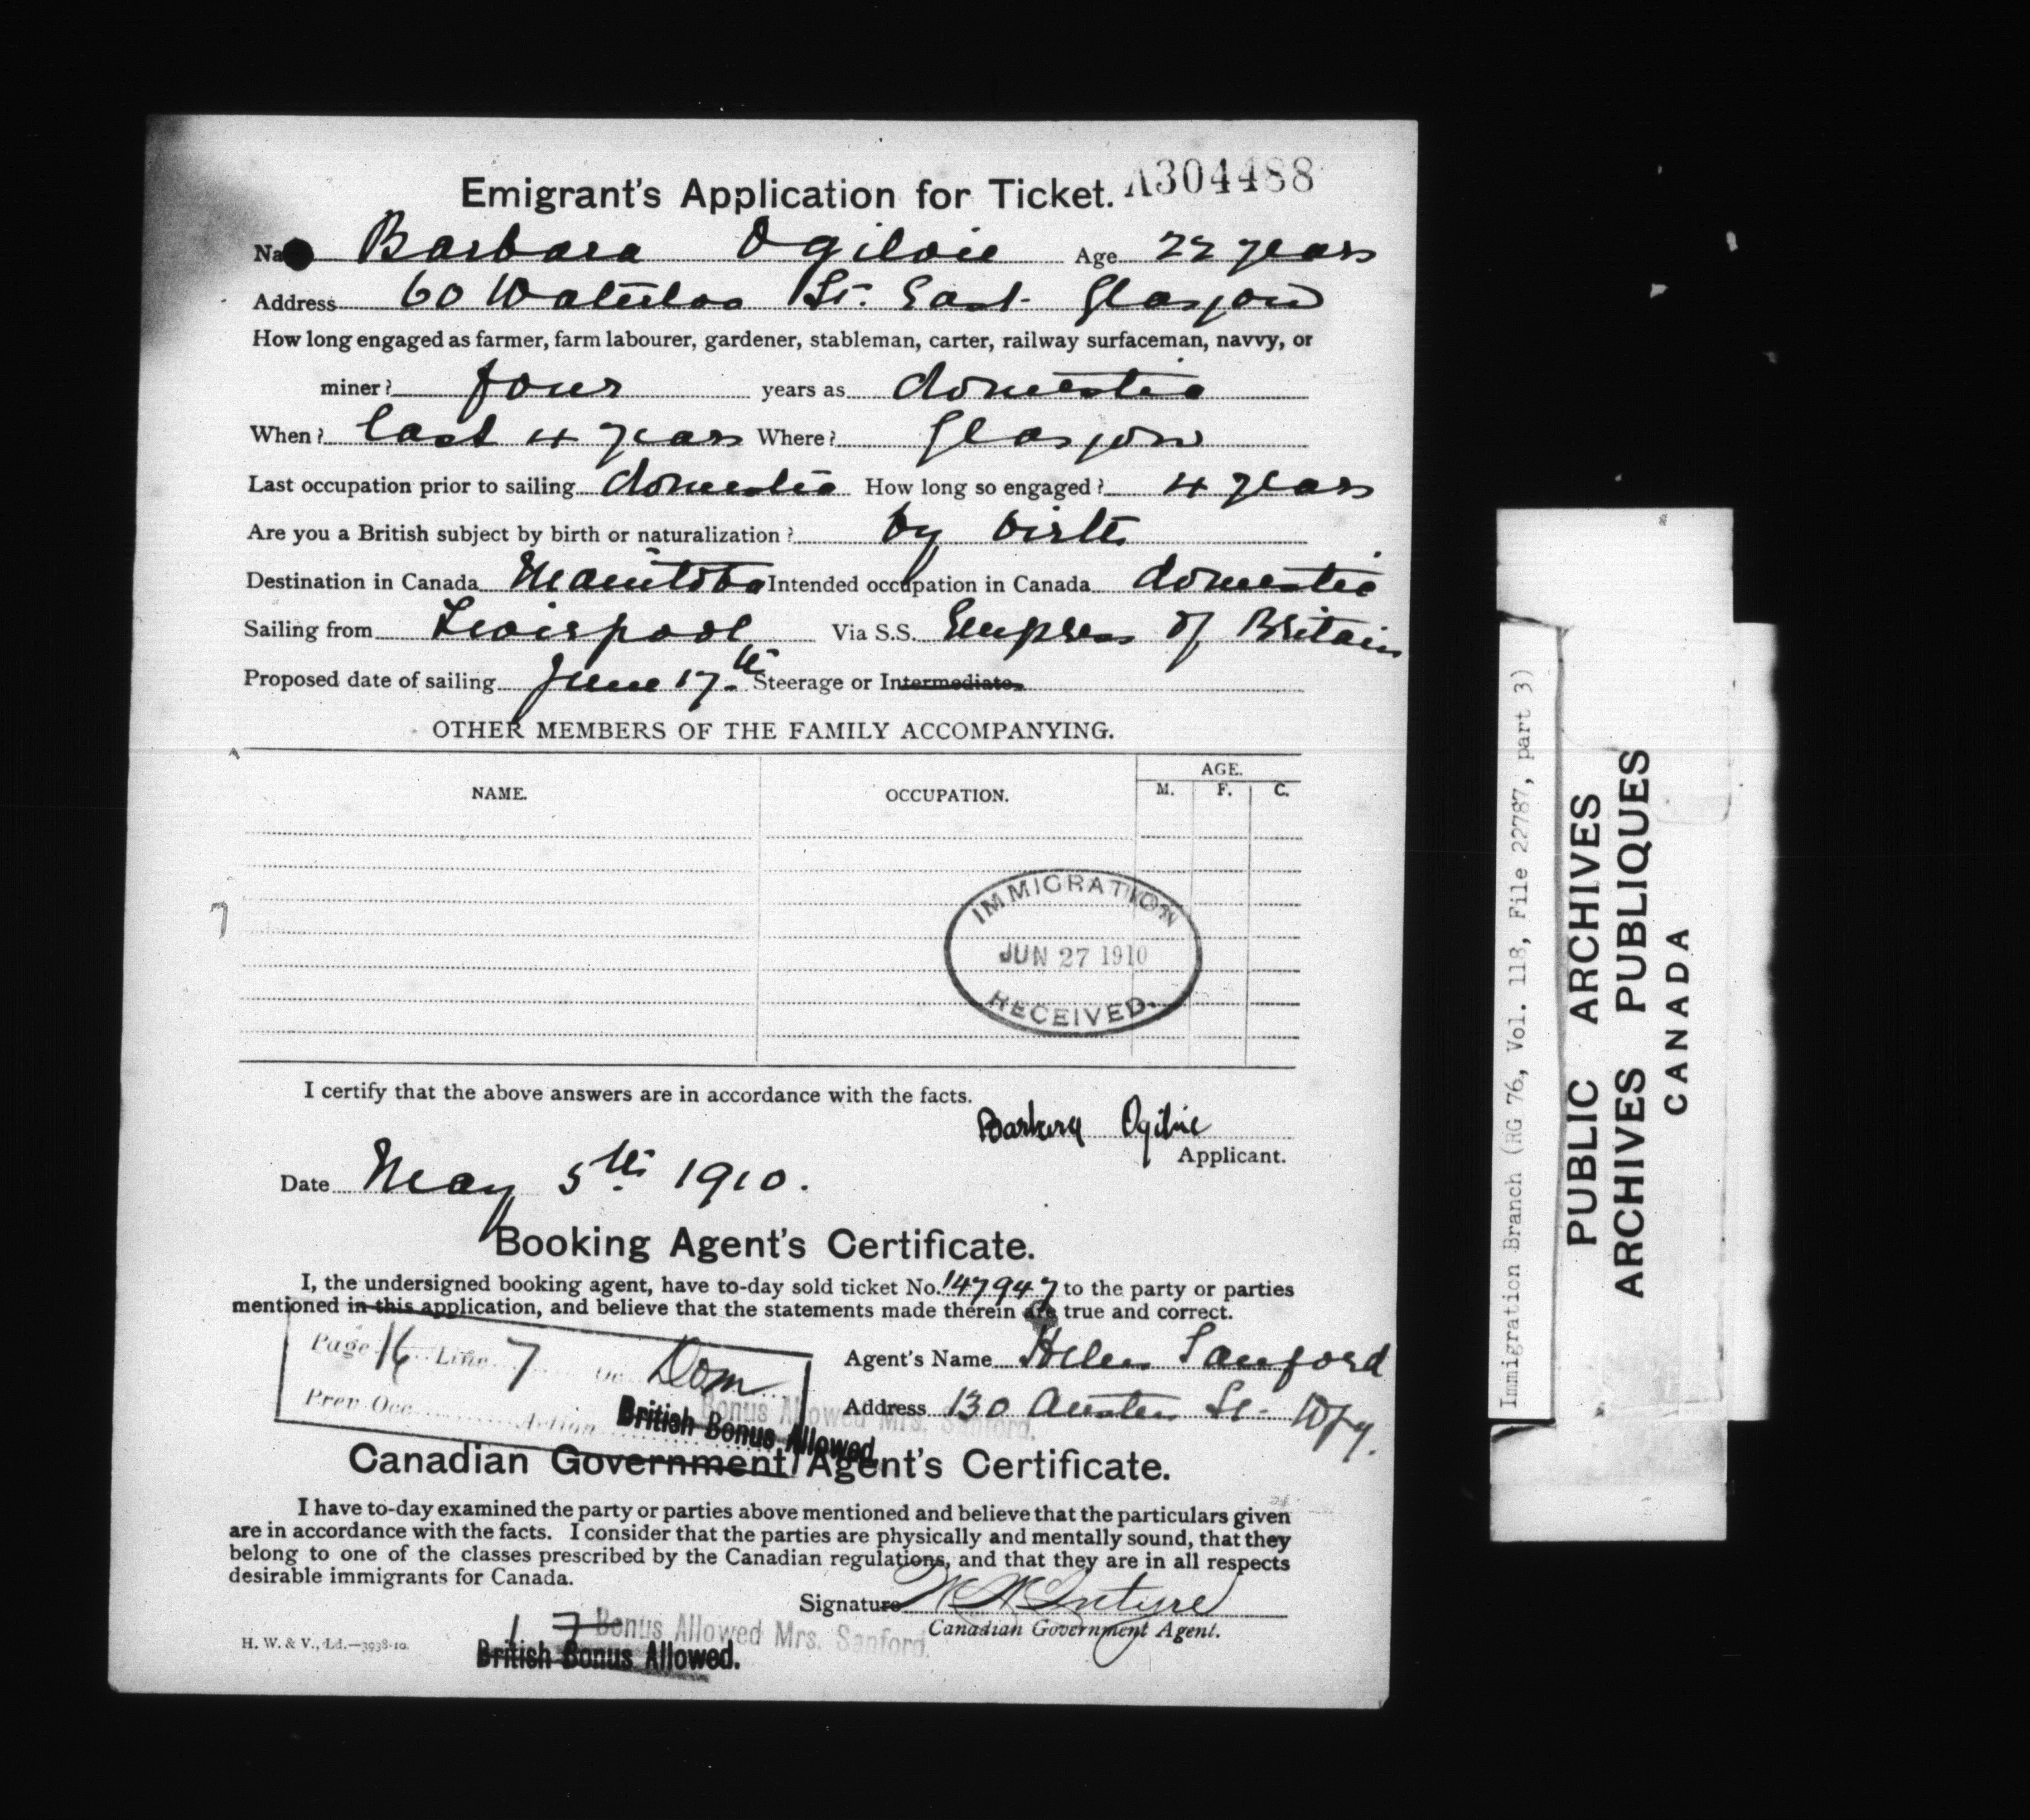 Emigrant's Application for Ticket. A304488
Na Barbara Ogilvie Age 22 years
Address 60 Waterloo St. East Glasgow
How long engaged as farmer, farm labourer, gardener, stableman, carter, railway surfaceman, navvy, or
miner? four years as domestic
When? last 4 years Where? Glasgow
Last occupation prior to sailing domestic How long so engaged? 4 years
Are you a British subject by birth or naturalization? by birth
Destination in Canada Manitoba Intended occupation in Canada domestic
Sailing from Liverpool Via S.S. Empress of Britain
Proposed date of sailing June 17th Steerage or Intermediate
OTHER MEMBERS OF THE FAMILY ACCOMPANYING.
NAME. OCCUPATION. AGE.
M. F. C.
IMMIGRATION
JUN 27 1910
RECEIVED.
7
I certify that the above answers are in accordance with the facts.
Barbara Ogilvie
Applicant.
Date May 5th 1910.
Booking Agent's Certificate.
I, the undersigned booking agent, have to-day sold ticket No. 147947 to the party or parties
mentioned in this application, and believe that the statements made therein are true and correct.
Page 16 Line 7 Oc Dom
Prev Occ Action
Agent's Name Helen Sanford
Address 130 Austin St. Wpg.
Bonus Allowed Mrs. Sanford.
British Bonus Allowed
Canadian Government Agent's Certificate.
I have to-day examined the party or parties above mentioned and believe that the particulars given
are in accordance with the facts. I consider that the parties are physically and mentally sound, that they
belong to one of the classes prescribed by the Canadian regulations, and that they are in all respects
desirable immigrants for Canada.
Signature W McIntyre
Canadian Government Agent.
H. W. & V., Ld.—3938-10.
1 7
Bonus Allowed Mrs. Sanford.
British Bonus Allowed.
Immigration Branch (RG 76, Vol. 118, File 22787, part 3)
PUBLIC ARCHIVES
ARCHIVES PUBLIQUES
CANADA